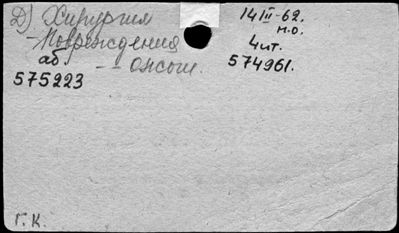 Д) Хирургия
14 III-62.
м.о.
- Повреждения
4 ит.
аб.
574961.
575223
Г. К.